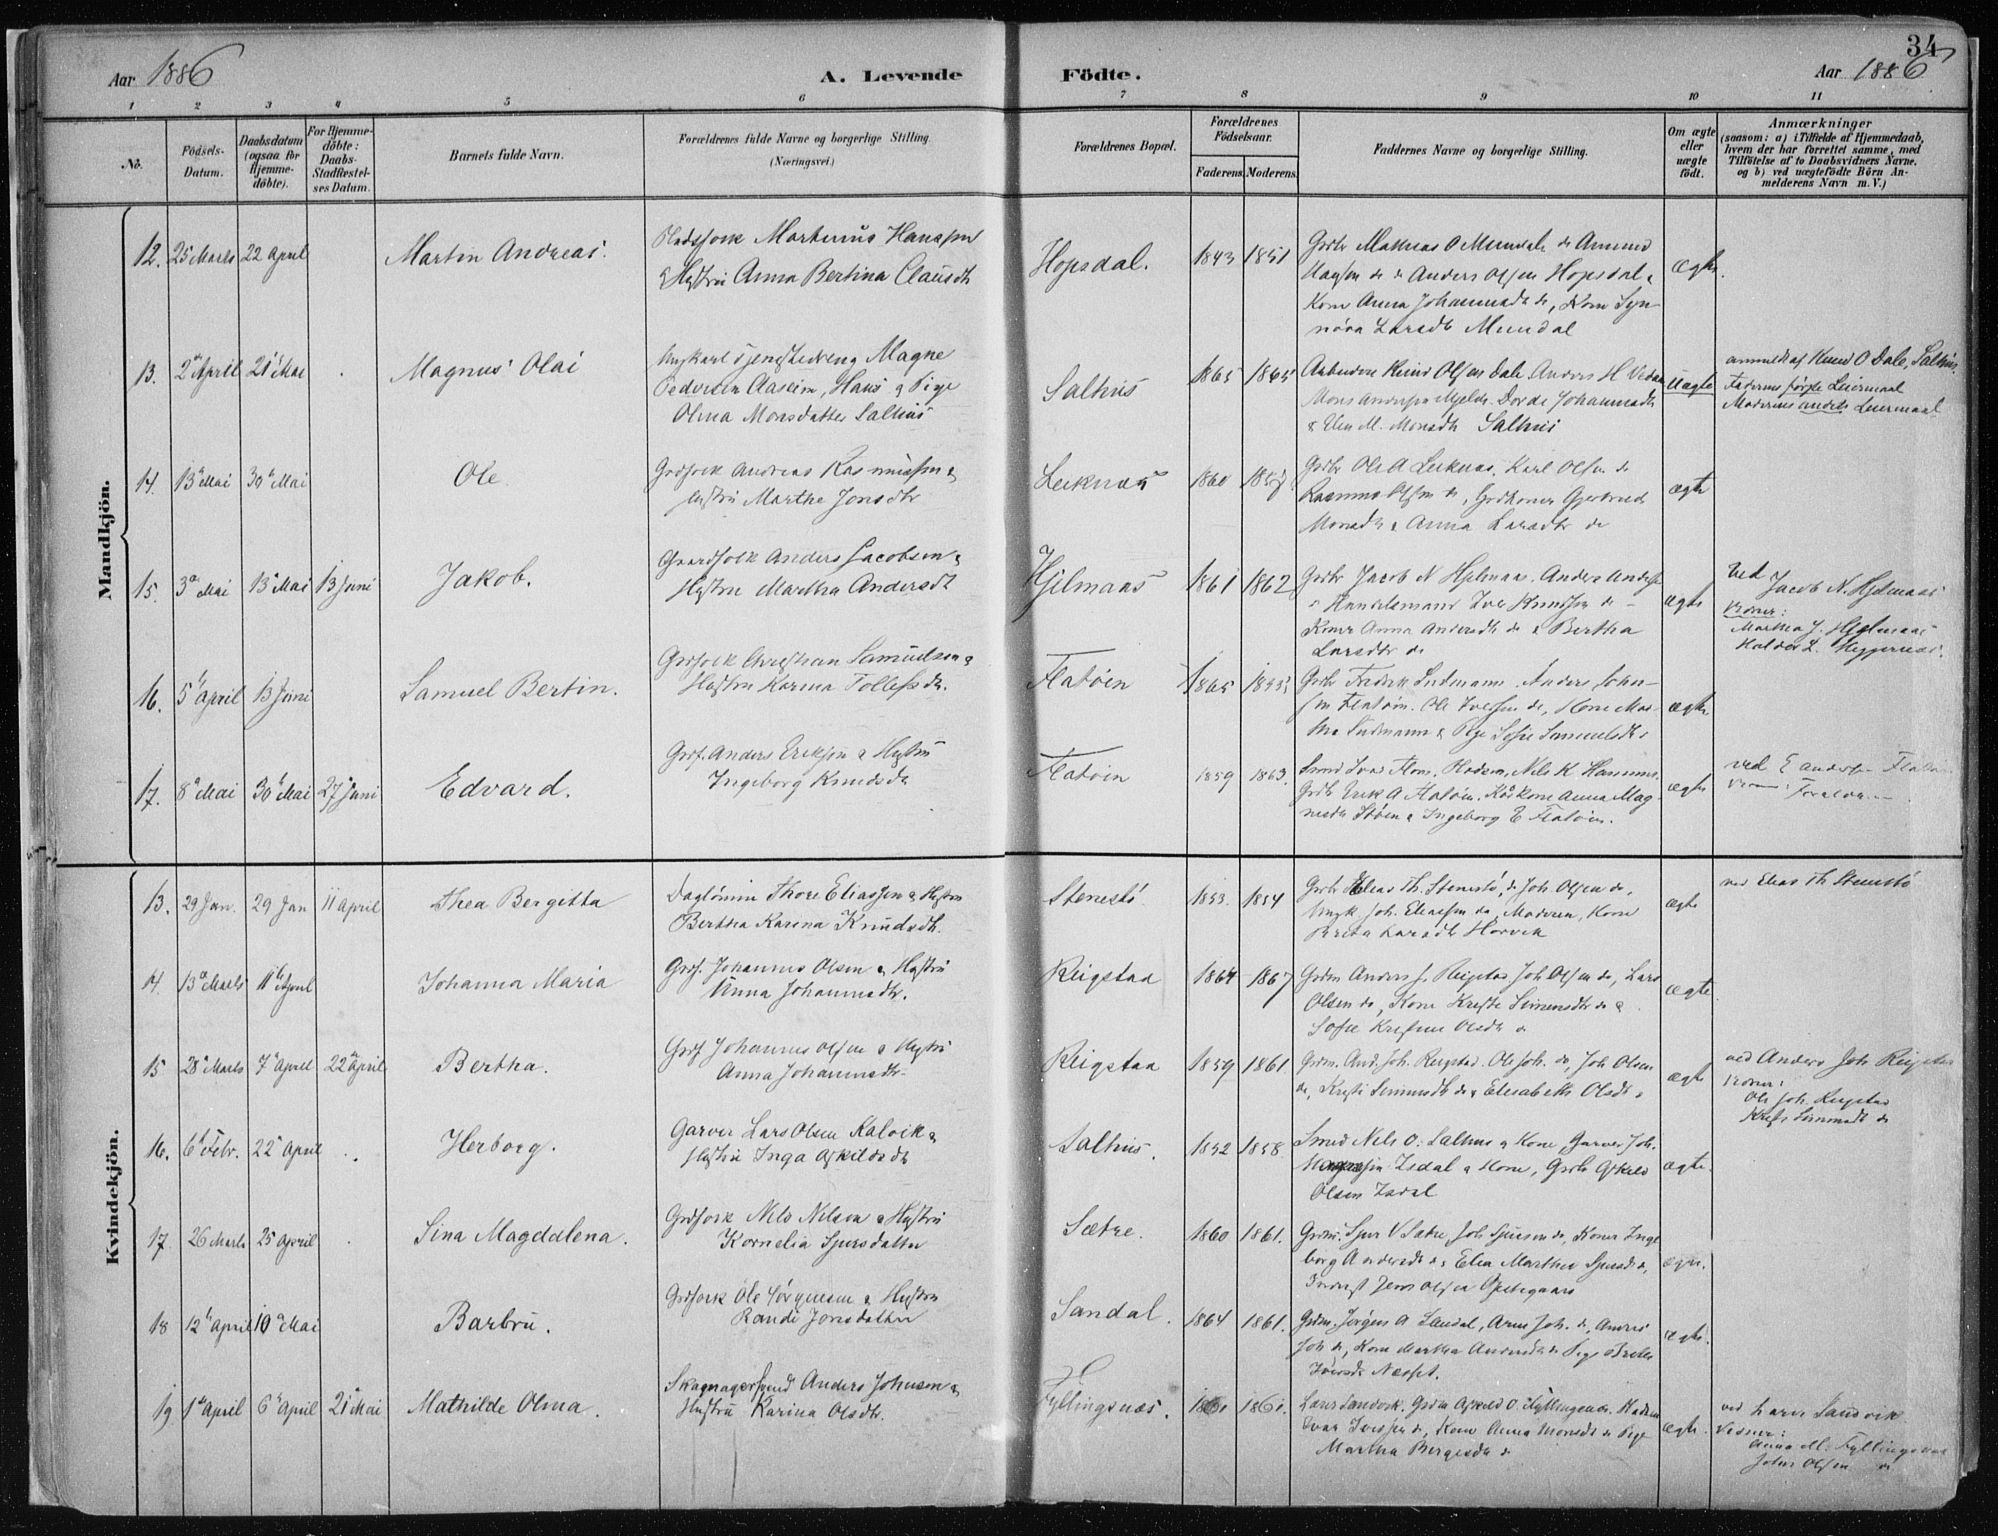 34
Aar 1886
A. Levende
Födte.
Aar 1886
1 2 3 4 5 6 7 8 9 10 11
No.
Födsels-
Datum.
Daabsdatum
(ogsaa for
Hjemme-
döbte).
For Hjemme-
döbte:
Daabs-
Stadfæstel-
ses Datum.
Barnets fulde Navn.
Forældrenes fulde Navne og borgerlige Stilling.
(Næringsvei.)
Forældrenes Bopæl.
Forældrenes
Födselsaar.
Faderens. Moderens.
Faddernes Navne og borgerlige Stilling.
Om ægte
eller
uægte
födt.
Anmærkninger
(saasom: a) i Tilfælde af Hjemmedaab,
hvem der har forrettet samme, med
Tilföielse af to Daabsvidners Navne,
og b) ved uægtefödte Börn An-
melderens Navn m. V.)
Mandkjön.
12. 25 Marts 22 April
Martin Andreas.
Pladsfolk Martinus Hanssen
& Hustru Anna Bertina Clausdtr
Hopsdal.
1843 1851
Grdbr Mathias O Mundal do Amund
do Anders Olsen Hopsdal &
Kone Anna Johannesdtr do, Kone Syn-
növa Larsdtr Mundal
ægte.
13. 2den April 21de Mai
Magnus Olai
Ungkarl Tjenestedreng Magne
Pedersen Aaseim, Haus & Pige
Olina Monsdatter Salhus
Salhus
1865 1865
Knud Olsen Dale Anders H
Mons Andersen Mjelde. Dorde Johannesdtr
& M. Monsdtr Salhus
Uægte
anmeldt af Knud O Dale, Salhus.
Faderens første Leiermaal
Moderens andet Leiermaal
14. 13de Mai 30te Mai
Ole
Grdfolk Andreas Rasmussen &
Hustru Marthe Jonsdtr
Leiknæs
1860 1857
Grdbr Ole A Leiknæs. Karl Olsen do
Rasmus Olsen do, Grdkoner Gjertrud
Monsdtr & Anna Larsdtr do
ægte
15. 3de Mai 13de Mai 13 Juni
Jakob.
Gaardfolk Anders Jacobsen &
Hustru Martha Andersdt
Hjelmaas
1861 1862
Grdbr Jacob N Hjelmaas. Anders Anders
Handelsmand Iver Knudsen do
Koner Anna Andersdtr do & Bertha
Larsdtr do
ægte
ved
Jacob N. Hjelmaas
Vidner:
Martha J. Hjelmaas
16. 5te April 13 Juni
Samuel Bertin.
Grdfolk Christian Samuelsen &
Hustru Karina Tollefsdtr.
Flatöen
1865 1855
Grdbr Fredrik Ludmann. Anders Johan-
sen Flatöen. Ole Iversen do, Kone Mar-
tha Ludmann & Pige Sofie Samuelsdtr
ægte
17. 8de Mai 30te Mai 27de Juni
Edvard.
Grdf. Anders Eriksen & Hustru
Ingeborg Knudsdtr
Flatöen
1859 1863.
Smed Ivar Nils K
Grdbr Erik A Flatöen. Kone Anna Mag-
& Ingeborg E Flatöen.
ægte
ved E Andersen Flatöen
Kvindekjön.
13. 29 Jan. 29 Jan 11 April
Thea Bergitta
Daglönner Thore Eliassen & Hustru
Berthea Karina Knudsdtr.
Stenestö
1853. 1854
Grdbr Elias Th. Stenestö, do Joh. Olsen do,
Ungk Joh. Eliassen do, Moderen, Kone
Brita Larsdtr Horvik
ægte
ved Elias Th Stenestö
14. 13de Marts 11te April
Johanna Maria
Grdf. Johannes Olsen & Hustru
Anna Johannesdtr.
Reigstad
1864 1867
Grdm Anders J. Reigstad Joh Olsen do, Lars
Olsen do, Kone Kristi Simensdtr do &
Sofie Kristine Olsdtr do
ægte.
15 28de Marts 7de April 22de April
Bertha.
Grdf. Johannes Olsen & Hustru
Anna Johannesdtr.
Reigstad
1859 1861
Grdm. And. Joh. Reigstad. Ole Joh. do, Joh Olsen
do, Kristi Simensdtr do & Elisabeth Olsdtr do
ægte
ved Anders Joh Reigstad
Vidner:
Ole Joh. Reigstad
Kristi Simensdtr do
16. 6te Febr. 22de April
Herborg.
Garver Lars Olsen Kalvik &
Hustru Inga Askildsdtr
Salhus.
1852 1858
Smed Nils O. Salhus & Kone, Garver Joh.
Isdal & Kone, Grdbr Askild
Olsen Isdal
ægte.
17. 26 Marts 25 April
Sina Magdalena.
Grdfolk Nils Nilsen & Hustru
Kornelia Sjursdatter
Sætre.
1860 1861.
Grdm. Sjur V Sætre, Joh Sjursen do, Koner Inge-
borg Andersdtr do & Elia Marthea Sjursdtr do,
Inderst Jens Olsen
ægte.
18 12te April 10de Mai
Barbru.
Grdfolk Ole Jörgensen & Hustru
Randi Jonsdatter
Sandal.
1864 1861.
Grdm. Jörgen A Sandal, Arne Joh. do, Anders
Joh do, Kone Martha Andersdtr do Pige Brita
Iversdtr Nesset.
ægte.
19 1ste April 6te April 21de Mai
Mathilde Olina.
Skomagersvend Anders Johnsen &
Hustru Karina Olsdtr.
Fyllingsnæs.
1861 1861.
Lars Sandvik. Grdm Askild O. Fyllingsnæs.
Ivar Iversen do, Kone Anna Monsdtr do Pige
Martha Bergesdtr do
ægte.
ved Lars Sandvik
Vidner:
Anna M. Fyllingsnæs
Johan Olsen do